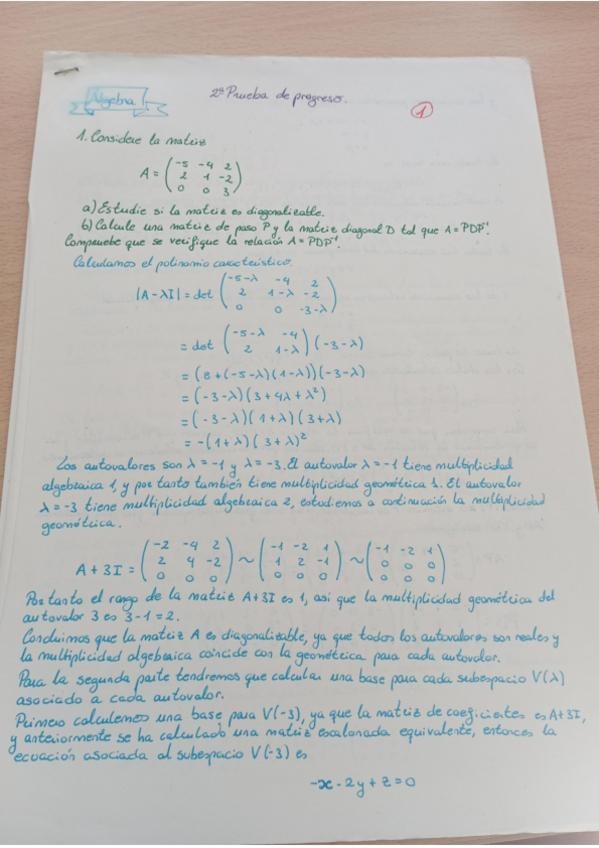 Álgebra I
2ª Prueba de progreso.
1
1. Considere la matriz
A = (-5 -4 2
2 1 -2
0 0 3)
a) Estudie si la matriz es diagonalizable.
b) Calcule una matriz de paso P y la matriz diagonal D tal que A = PDP⁻¹.
Compruebe que se verifique la relación A = PDP⁻¹.
Calculamos el polinomio característico.
|A-λI| = det (-5-λ -4 2
2 1-λ -2
0 0 -3-λ)
= det (-5-λ -4
2 1-λ) (-3-λ)
= (8+(-5-λ)(1-λ))(-3-λ)
= (-3-λ)(3+4λ+λ²)
= (-3-λ)(1+λ)(3+λ)
= -(1+λ)(3+λ)²
Los autovalores son λ=-1 y λ=-3. El autovalor λ=-1 tiene multiplicidad
algebraica 1, y por tanto también tiene multiplicidad geométrica 1. El autovalor
λ=-3 tiene multiplicidad algebraica 2, estudiemos a continuación la multiplicidad
geométrica.
A+3I = (-2 -4 2
2 4 -2
0 0 0) ~ (-1 -2 1
1 2 -1
0 0 0) ~ (-1 -2 1
0 0 0
0 0 0)
Por tanto el rango de la matriz A+3I es 1, así que la multiplicidad geométrica del
autovalor 3 es 3-1=2.
Concluimos que la matriz A es diagonalizable, ya que todos los autovalores son reales y
la multiplicidad algebraica coincide con la geométrica para cada autovalor.
Para la segunda parte tendremos que calcular una base para cada subespacio V(λ)
asociado a cada autovalor.
Primero calculemos una base para V(-3), ya que la matriz de coeficientes es A+3I,
y anteriormente se ha calculado una matriz escalonada equivalente, entonces la
ecuación asociada al subespacio V(-3) es
-x-2y+z=0